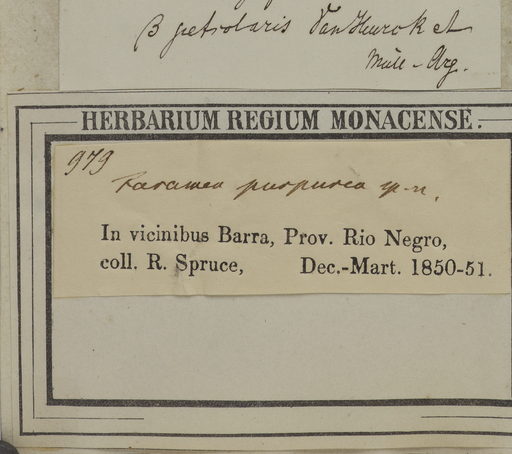 β petiolaris Van Heurck et
Müll-Arg.
HERBARIUM REGIUM MONACENSE.
979
Faramea purpurea sp. n.
In vicinibus Barra, Prov. Rio Negro,
coll. R. Spruce, Dec.-Mart. 1850-51.